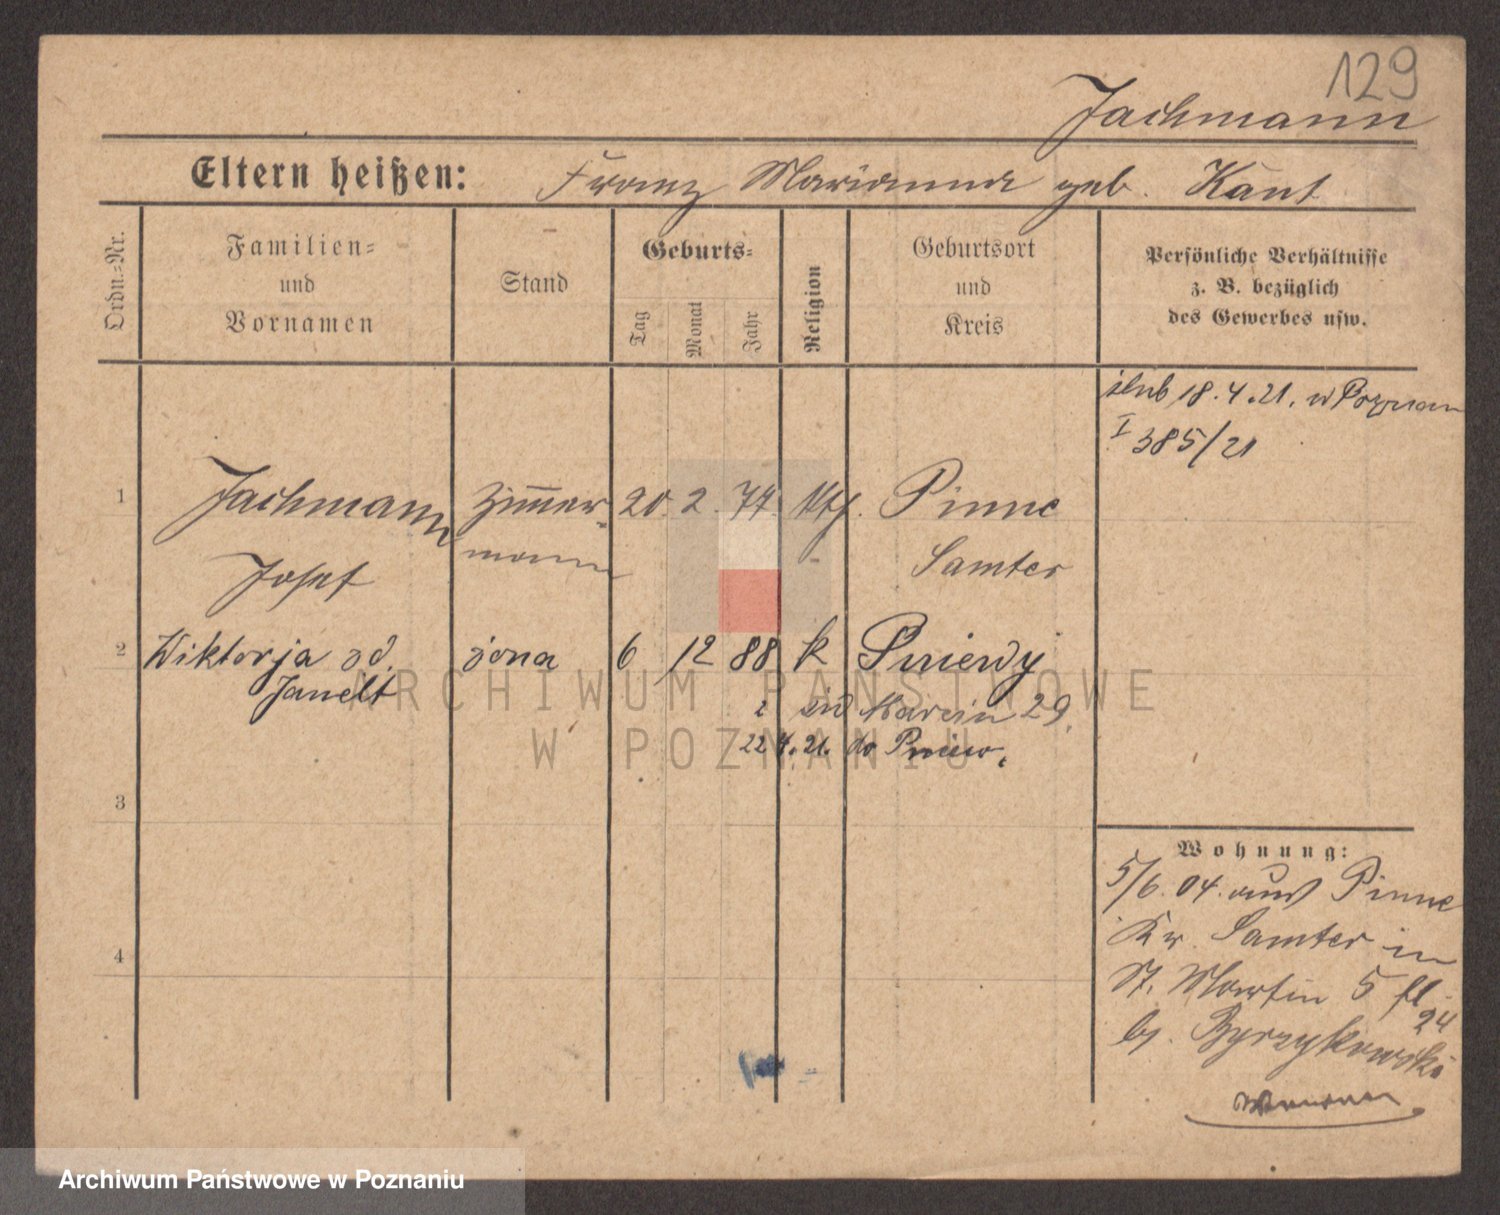 129
Jachmann
Eltern heißen: Franz Marianna geb. Kant
Ordn.-Nr.
Familien-
und
Vornamen
Stand
Geburts-
Tag
Monat
Jahr
Religion
Geburtsort
und
Kreis
Persönliche Verhältnisse
z. B. bezüglich
des Gewerbes usw.
ślub 18.4.21. w Poznan
I 385/21
1 Jachmann Zimmer- 20. 2. 77. kth. Pinne
Josef mann Samter
2 Wiktorja zd. żona 6 12 88 k Pniewy
Janelt
św Marcin 29.
22 4. 21. do Pniew.
3
4
Wohnung:
5/6. 04. aus Pinne
Kr. Samter in
St. Martin 5 fl.
24
b/.
ARCHIWUM PAŃSTWOWE
W POZNANIU
Archiwum Państwowe w Poznaniu